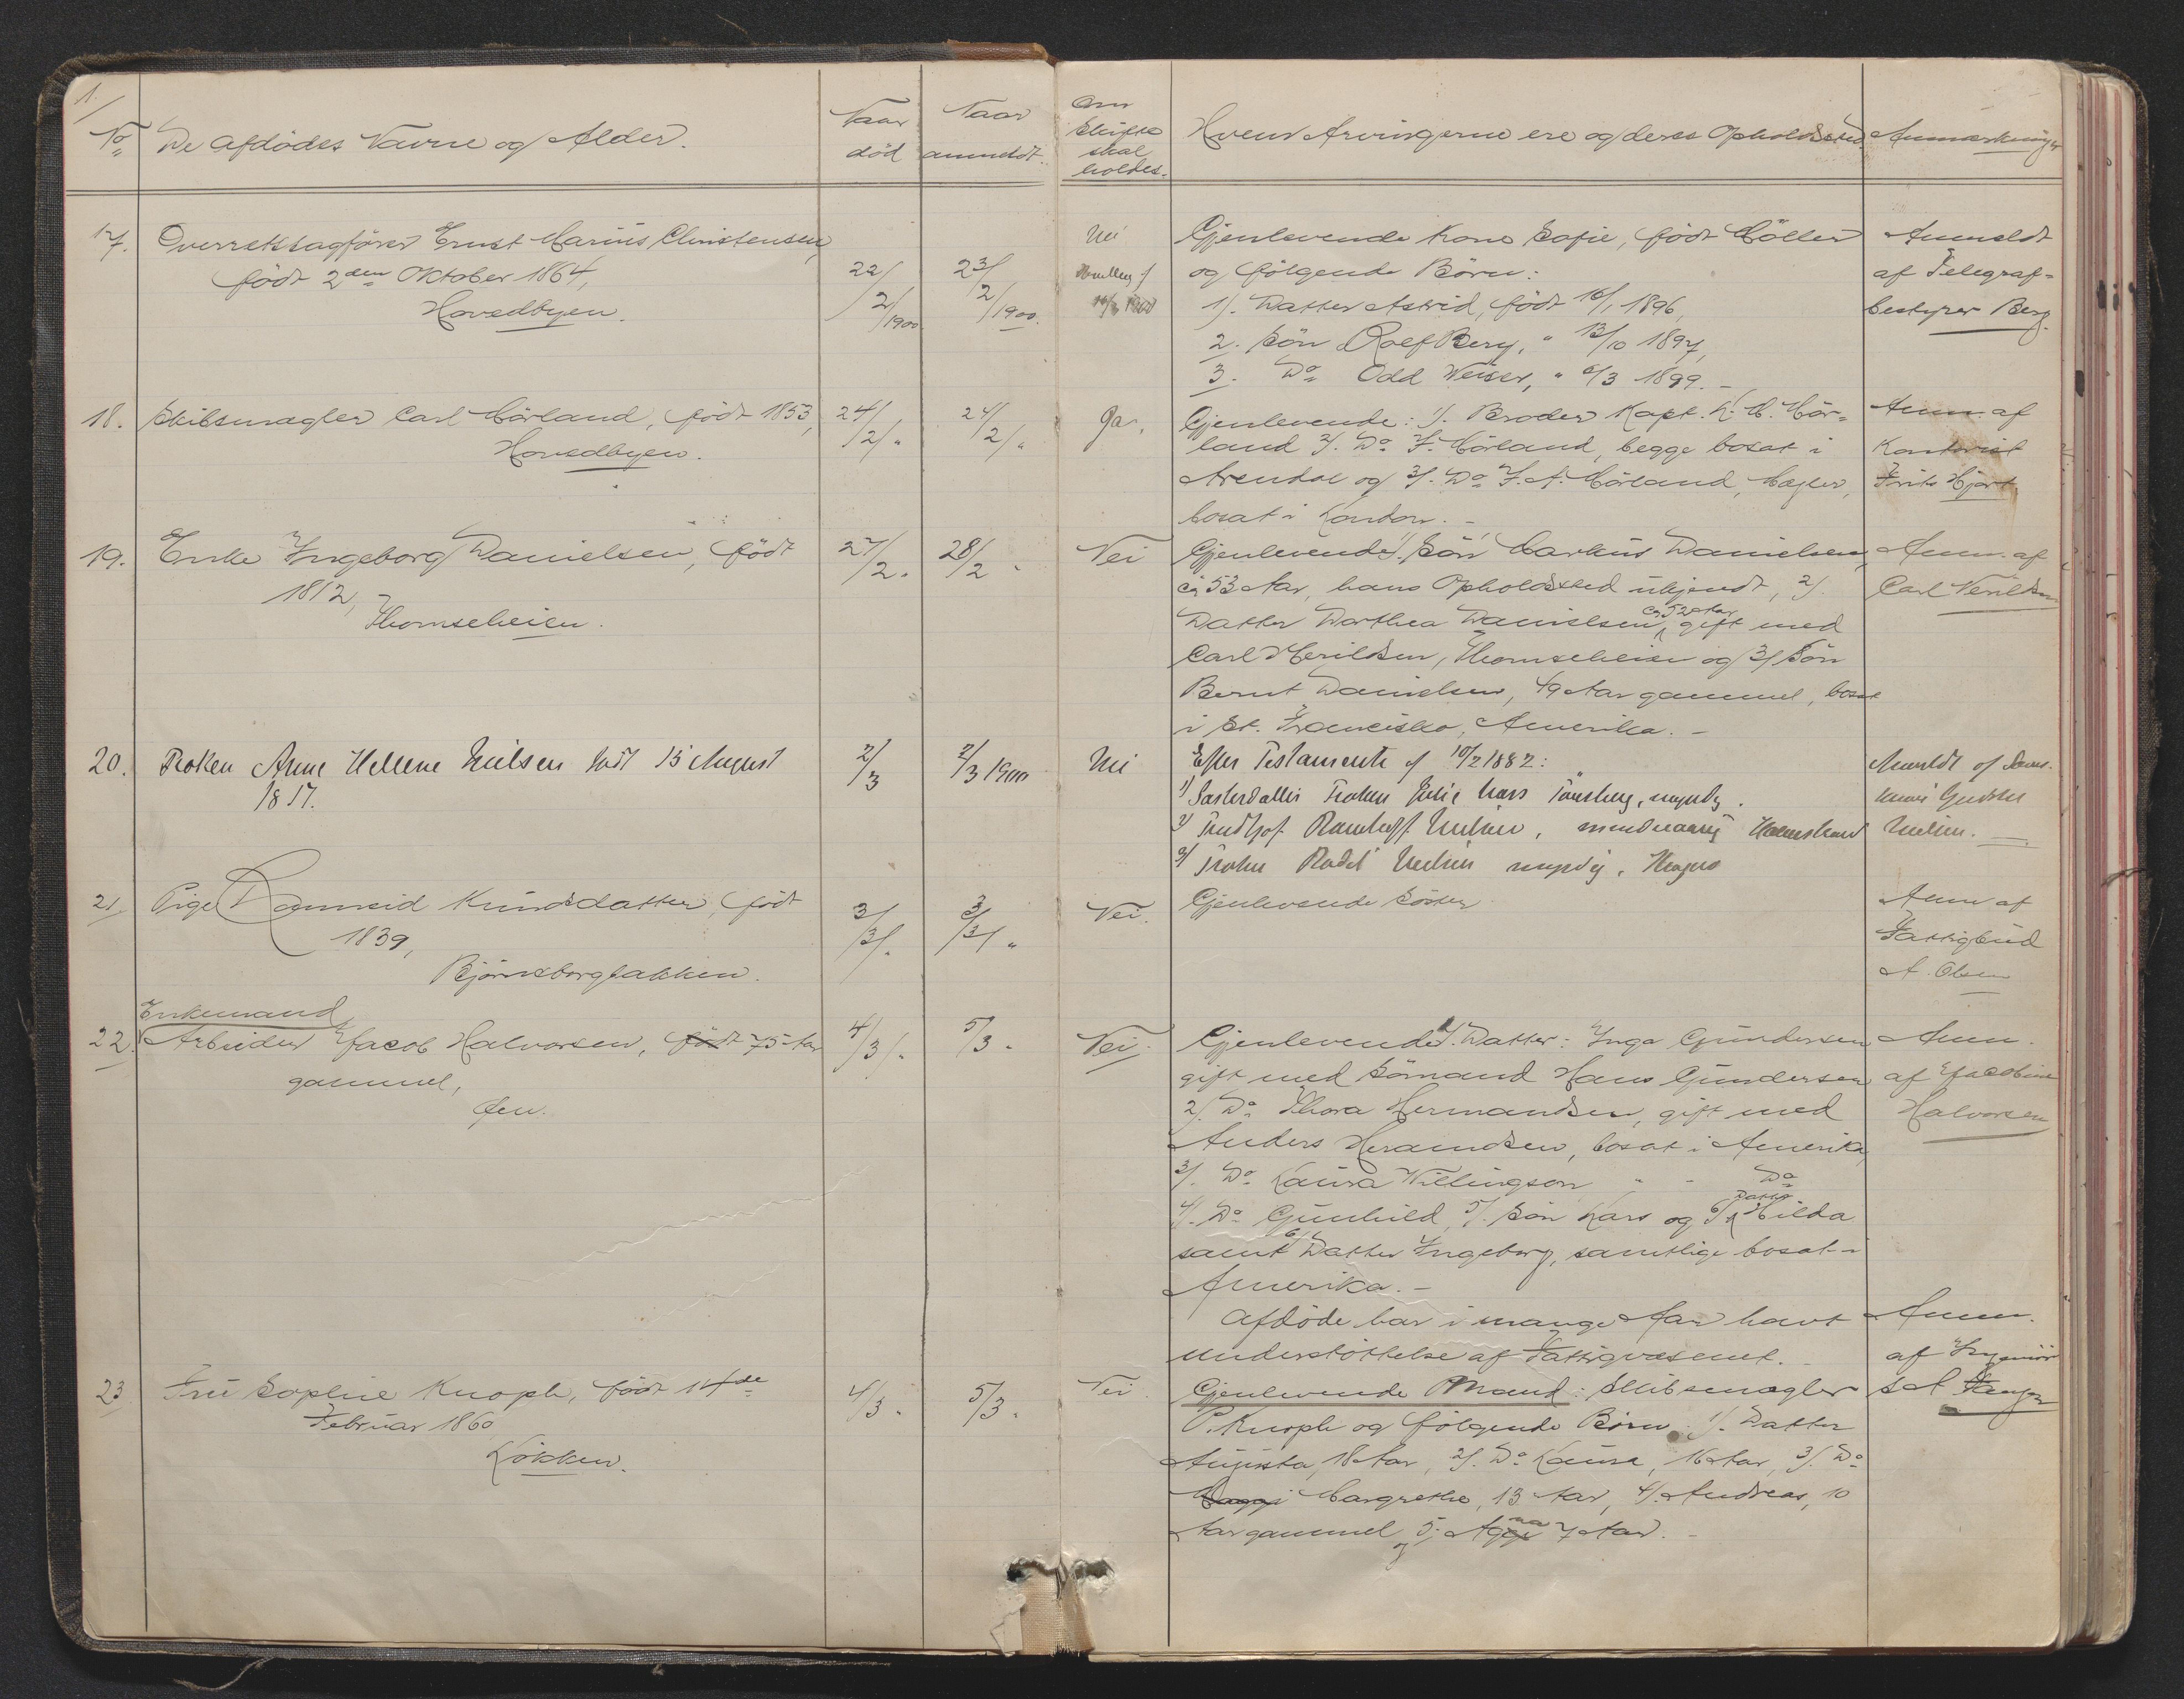 1.
No
De afdödes Navne og Alder.
Naar död
Naar anmeldt.
Om Skifte skal holdes.
Hvem Arvingerne ere og deres Opholdssted
Anmærkninger
17.
Overretssagförer Ernst Marius Christensen,
födt 2den Oktober 1864,
Hovedbyen.
22/2/1900
23/2/1900.
Nei
Gjenlevende Kone Sofie, födt Möller
og fölgende Börn:
1/. Datter Astrid, födt 16/1 1896,
2. Sön Rolf Berg, " 13/10 1897,
3. Do Odd Weiser, " 6/3 1899. –
Anmeldt
af Telegraf=
bestyrer Berg.
18.
Skibsmægler Carl Mörland, födt 1853,
Hovedbyen.
24/2/ "
24/2/ "
Ja.
Gjenlevende: 1/. Broder Kapt. K. M. Mör=
land 2/. Do F. Mörland, begge bosat i
Arendal og 3/. Do J. A. Mörland, Mægler,
bosat i London. –
Anm. af
Kontorist
Frits Hjort
19.
Enke Ingeborg Danielsen, födt
1812,
Thomseheien.
27/2.
28/2 "
Nei
Gjenlevende 1/. Sön Markus Danielsen,
ca 53 Aar, hans Opholdssted ukjendt, 2/.
ca 52 Aar
Datter Dorthea Danielsen, gift med
Carl Terildsen, Thomseheien og 3/ Sön
Bernt Danielsen, 49 Aar gammel, bosat
i St. Francisko, Amerika. –
Anm. af
Carl Terildsen
20.
Fröken Anne Hellene Nielsen födt 15 August
1817.
2/3
2/3 1900
Nei
Efter Testamente af 10/2 1882:
1) Sösterdatter Fröken Julie Tönsberg, myndig.
2) Nielsen, mindreaarig
3) Fröken Nielsen myndig,
Anmeldt af
Nielsen.
21/
Pige Ranneid Knudsdatter, födt
1839,
Björnsborgbakken.
3/3/.
3/3/ "
Nei.
Gjenlevende Söster
Anm af
Fattigbud
A. Olsen
22.
Enkemand
Arbeider Jacob Halvorsen, födt 75 Aar
gammel,
Öen.
4/3/.
5/3 "
Nei.
Gjenlevende 1/. Datter: Inga Gundersen
gift med Sömand Hans Gundersen
2/. Do Thora Hermandsen, gift med
Anders Heramdsen, bosat i Amerika,
3/. Do Laura Willingson " - Do
4/. Do Gunhild, 5/. Sön Lars og 6/ Datter Hilda
samt 6/ Datter Ingeborg, samtlige bosat i
Amerika. –
Afdöde har i mange Aar havt
understöttelse af Fattigvæsenet. –
Anm.
af Jacobine
Halvorsen
23
Fru Sophie Knoph, födt 14de
Februar 1860
Lökken.
4/3 "
5/3 "
Nei
Gjenlevende Mand: Skibsmægler
P. Knoph og fölgende Börn: 1/. Datter
Augusta, 18 Aar, 2/. Do Laura, 16 Aar, 3/. Do
Maggi Margrethe, 13 Aar, 4/. Andreas, 10
Aar gammel og 5/. 7 Aar. –
Anm.
af Ingeniör